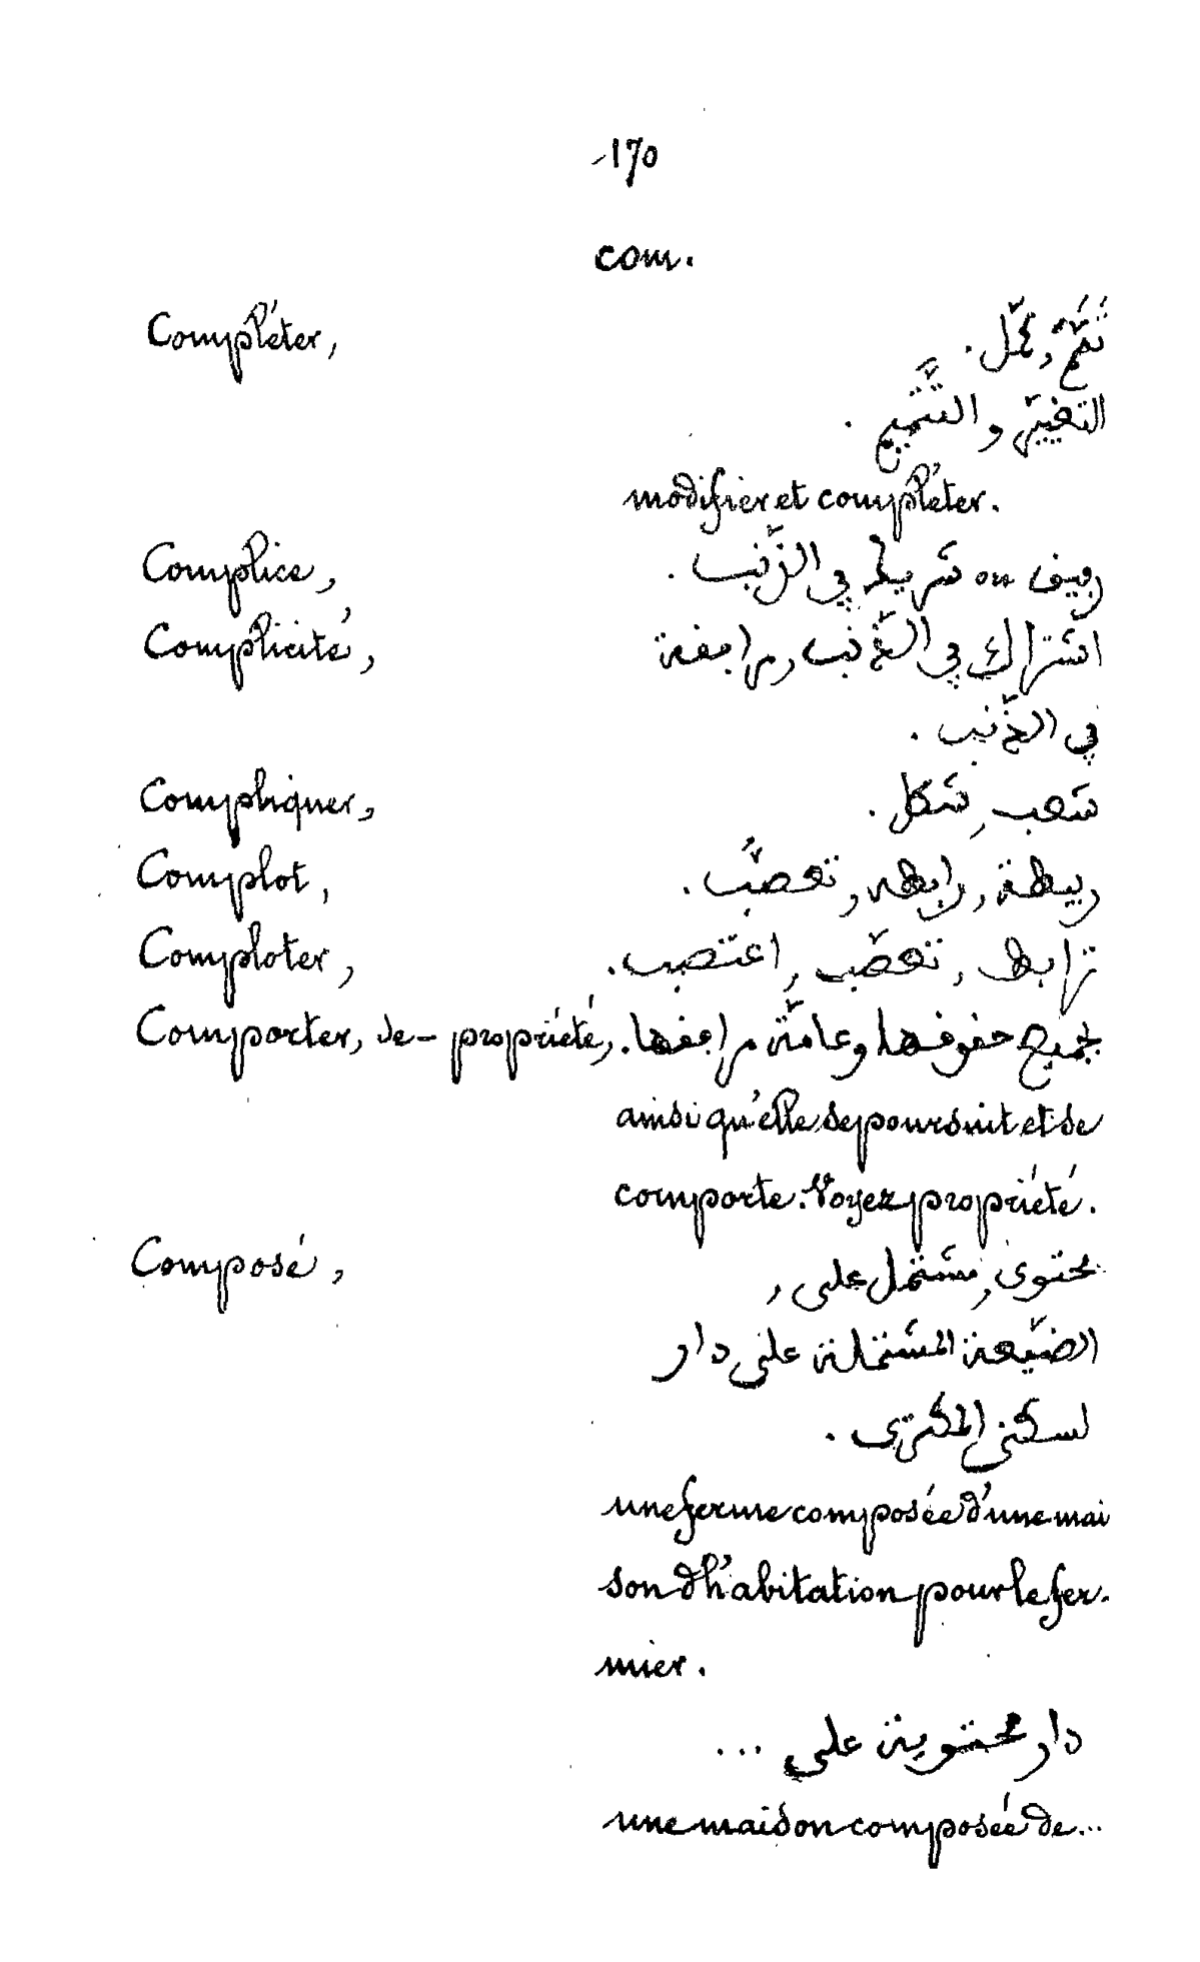 170
com.
Compléter, تَمَّمَ, كمّل.
التغيير و التَّتْميم.
modifier et compléter.
Complice, رفيق ou شريك في الذّنب.
Complicité, اشتراك في الذّنب, مرافقة
في الذّنب.
Compliquer, شعب, شكل.
Complot, ربيطة, رابطه, تعصّب.
Comploter, ترابط, تعصّب, اعتصب.
Comporter, se - propriété, بجميع حقوقها وعامّة مرافقها.
ainsi qu'elle se poursuit et se
comporte. Voyez propriété.
Composé, محتوى, مشتمل على,
الضّيعة المشتملة على دار
لسكنى المكترى.
une ferme composée d'une mai
son d'habitation pour le fer-
mier.
دار محتوية على ...
une maison composée de...